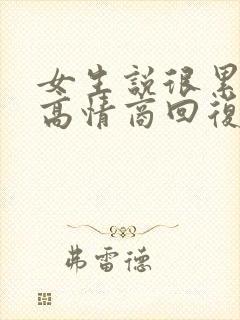 女生說很累
高情商回復
弗雷德